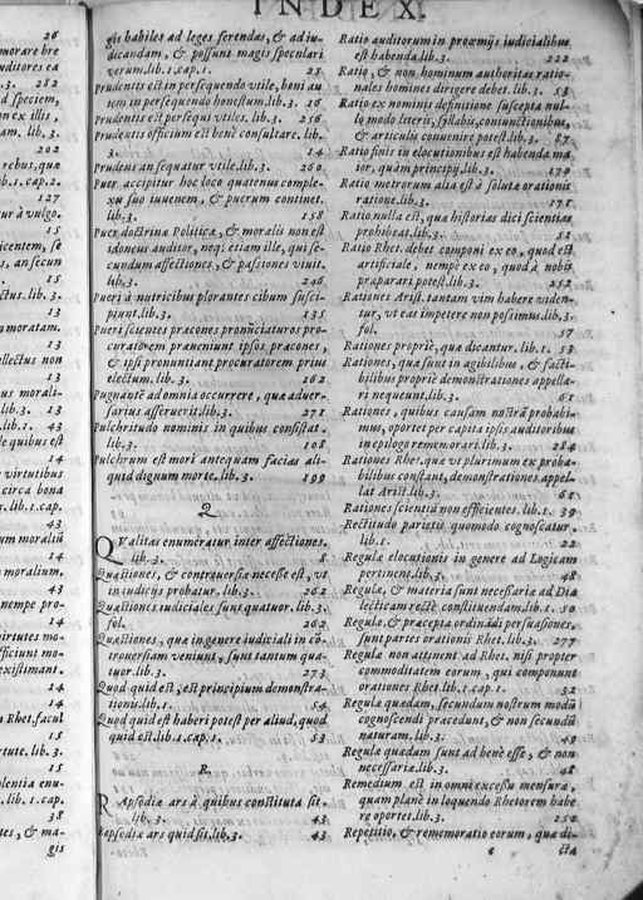 INDEX.
26
morare bre
uditores ea
.3. 282
d speciem,
n ex illis,
am. lib. 3.
202
rebus, quæ
b.1.cap.2.
127
ur à vulgo.
15
icentem, se
s, an secun
15
ctus.lib.3.
13
n moratam.
13
ellectus non
13
us morali-
lib.3. 13
lib.1. 43
le quibus est
14
virtutibus
circa bona
s.lib.1.cap.
43
um moraliū
14
moralium.
43
nempe pro-
14
virtutes mo-
fficiunt mo-
existimant.
14
14
Rhet.facul
15
tute.lib.3.
15
olentia enu-
.lib.1.cap.
38
tes, & ma-
gis
gis habiles ad leges ferendas, & adiu-
dicandam, & possunt magis speculari
verum.lib.1.cap.1. 25
Prudentis est in persequendo vtile, boni au
tem in persequendo honestum.lib.3. 26
Prudentis est persequi vtiles. lib.3. 256
Prudentis officium est benè consultare. lib.
3. 14
Prudens an sequatur vtile.lib.3. 260
Puer accipitur hoc loco quatenus comple-
xu suo iuuenem, & puerum continet.
lib.3. 158
Puer doctrinæ Politicæ, & moralis non est
idoneus auditor, neq; etiam ille, qui se-
cundum affectiones, & passiones viuit.
lib.3. 246
Pueri à nutricibus plorantes cibum susci-
piunt.lib.3. 135
Pueri scientes præcones pronũciaturos pro-
curatorem præueniunt ipsos præcones,
& ipsi pronuntiant procuratorem prius
electum.lib.3. 162
Pugnantē ad omnia occurrere, quæ aduer-
sarius asseruerit.lib.3. 271
Pulchritudo nominis in quibus consistat.
lib.3. 108
Pulchrum est mori antequam facias ali-
quid dignum morte.lib.3. 199
Q
QValitas enumeratur inter affectiones.
lib.3. 8
Quæstiones, & controuersiæ necesse est, vt
in iudicijs probatur.lib.3. 262
Quæstiones iudiciales sunt quatuor.lib.3.
fol. 262
Quæstiones, quæ in genere iudiciali in cō-
trouersiam veniunt, sunt tantum qua-
tuor.lib.3. 273
Quod quid est, est principium demonstra-
tionis.lib.1. 54
Quod quid est haberi potest per aliud, quod
quid est.lib.1.cap.1. 53
R.
RApsodiæ ars à quibus constituta sit.
lib.3. 43
Rapsodiæ ars quid sit.lib.3. 43
Ratio auditorum in proœmijs iudicialibus
est habenda.lib.3. 222
Ratio, & non hominum authoritas ratio-
nales homines dirigere debet.lib.3. 53
Ratio ex nominis definitione suscepta nul-
lo modo literis, syllabis, coniunctionibus,
& articulis conuenire potest.lib.3. 87
Ratio finis in elocutionibus est habenda ma
ior, quàm principij.lib.3. 179
Ratio metrorum alia est à solutæ orationis
ratione.lib.3. 175
Ratio nulla est, quæ historias dici scientias
prohibeat.lib.3. 51
Ratio Rhet.debet componi ex eo, quod est
artificiale, nempè ex eo, quod à nobis
præparari potest.lib.3. 252
Rationes Arist. tantam vim habere viden-
tur, vt eas impetere non possimus.lib.3.
fol. 57
Rationes propriè, quæ dicantur. lib.1. 53
Rationes, quæ sunt in agibilibus, & facti-
bilibus propriè demonstrationes appella-
ri nequeunt.lib.3. 61
Rationes, quibus causam nostrā probabi-
mus, oportet per capita ipsis auditoribus
in epilogo rememorari.lib.3. 284
Rationes Rhet.quæ vt plurimum ex proba-
bilibus constant, demonstrationes appel-
lat Arist.lib.3. 61
Rationes scientiã non efficientes.lib.1. 39
Rectitudo parietis quomodo cognoscatur.
lib.1. 22
Regulæ elocutionis in genere ad Logicam
pertinent.lib.3. 48
Regulæ, & materia sunt necessariæ ad Dia
lecticam rectè constituendam.lib.1. 50
Regulæ, & præcepta ordinãdi persuasiones,
sunt partes orationis Rhet.lib.3. 277
Regulæ non attinent ad Rhet. nisi propter
commoditatem eorum, qui componunt
orationes Rhet.lib.1.cap.1. 32
Regulæ quædam, secundum nostrum modū
cognoscendi præcedunt, & non secundū
naturam.lib.3. 49
Regulæ quædam sunt ad benè esse, & non
necessariæ.lib.3. 48
Remedium est in omni excessu mensura,
quam planè in loquendo Rhetorem habe
re oportet.lib.3. 252
Repetitio, & rememoratio eorum, quæ di-
cta